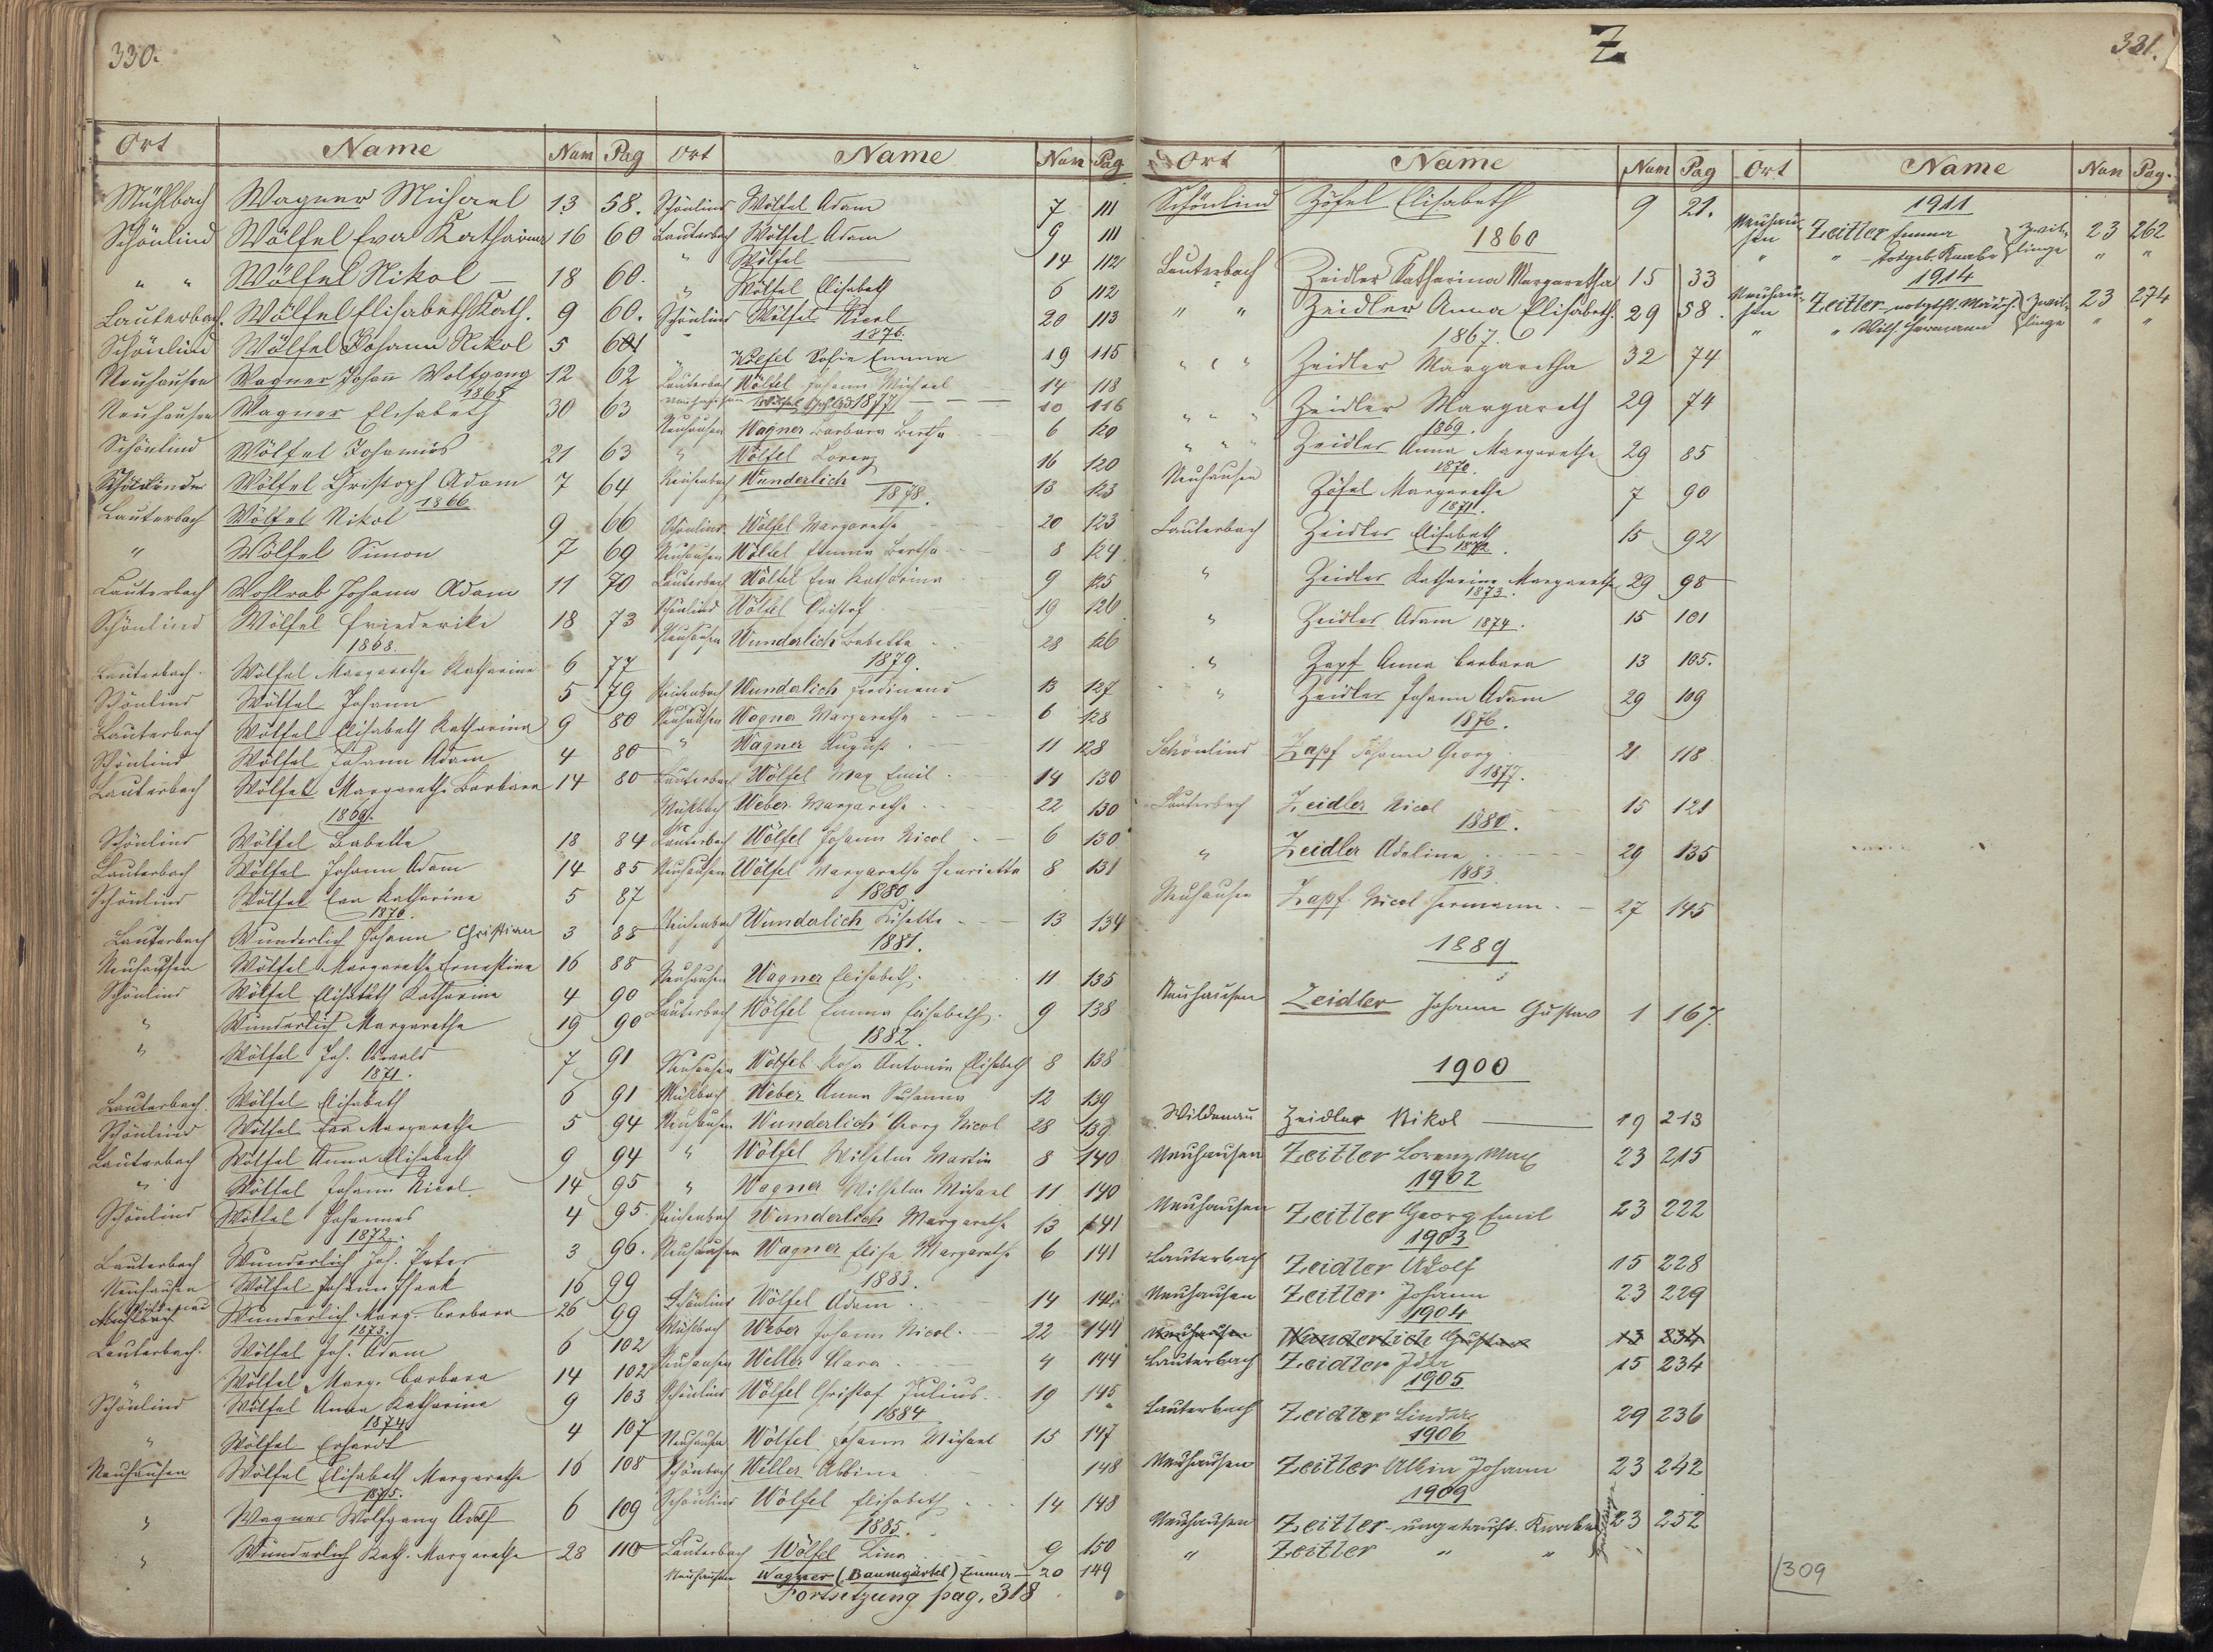 330.
Ort Name Num Pag
Mühlbach Wagner Michael 13 58.
Schönlind Wölfel Eva Katharina 16 60
" " Wölfel Nikol — 18 60.
Lauterbach. Wölfel Elisabeth Kath. 9 60.
Schönlind Wölfel Johann Nikol 5 61
Neuhausen Wagner Johañ Wolfgang 12 62
1865
Neuhausen Wagner Elisabeth 30 63
Schönlind Wölfel Johannes 21 63
Schönlind Wölfel Christoph Adam 7 64
1866
Lauterbach Wölfel Nikol 9 66
" Wölfel Simon 7 69
Lauterbach Wohlrab Johann Adam 11 70
Schönlind Wölfel Friederike 18 73
1868.
Lauterbach. Wölfel Margarethe Katharine 6 77
Schönlind Wölfel Johann 5 79
Lauterbach Wölfel Elisabeth Katharina 9 80
Schönlind Wölfel Johann Adam 4 80
Lauterbach Wölfel Margarethe Barbara 14 80
1869.
Schönlind Wölfel Babette 18 84
Lauterbach Wölfel Johann Adam 14 85
Schönlind Wölfel Eva Katharine 5 87
1870.
Lauterbach Wunderlich Johann Christian 3 88
Neuhausen Wölfel Margarethe Ernestine 16 88
Schönlind Wölfel Elisabeth Katharine 4 90
" Wunderlich Margarethe 19 90
" Wölfel Joh. Oswald 7 91
1871.
Lauterbach. Wölfel Elisabeth 6 91
Schönlind Wölfel Eva Margarethe 5 94
Lauterbach Wölfel Anna Elisabeth 9 94
" Wölfel Johann Nicol. 14 95
Schönlind Wölfel Johannes 4 95.
1872.
Lauterbach Wunderlich Joh. Peter 3 96.
Neuhausen Wölfel Johann 16 99
Mühlbach Wunderlich Marg. Barbara 26 99
1873.
Lauterbach. Wölfel Joh. Adam 6 102
" Wölfel Marg. Barbara 14 102
Schönlind Wölfel Anna Katharine 9 103
1874
" Wölfel Erhardt 4 107
Neuhausen Wölfel Elisabeth Margarethe 16 108
1875.
" Wagner Wolfgang Adolf 6 109
" Wunderlich Kath. Margarethe 28 110
Ort Name Num Pag
Schönlind Wölfel Adam 7 111
Lauterbach Wölfel Adam 9 111
" Wölfel — 14 112
" Wölfel Elisabeth 6 112
Schönlind Wölfel Nicol 20 113
1876.
" Wölfel Sofie Emma 19 115
Lauterbach Wölfel Johann Michael 14 118
Neuhausen Wölfel 10 116
1877
Neuhausen Wagner Barbara Bertha 6 120
" Wölfel Lorenz 16 120
Reichenbach Wunderlich — 13 123
1878.
Schönlind Wölfel Margarethe 20 123
Neuhausen Wölfel Emma Bertha 8 124
Lauterbach Wölfel Eva Katharina 9 125
Schönlind Wölfel Christof 19 126
Neuhausen Wunderlich Babette 28 126
1879.
Reichenbach Wunderlich Ferdinand 13 127
Neuhausen Wagner Margarethe 6 128
" Wagner August 11 128
Lauterbach Wölfel Max Emil 14 130
Mühlbach Weber Margarethe 22 130
Lauterbach Wölfel Johann Nicol 6 130
Neuhausen Wölfel Margaretha Henrietta 8 131
1880.
Reichenbach Wunderlich Lisette 13 134
1881.
Neuhausen Wagner Elisabeth. 11 135
Lauterbach Wölfel Emma Elisabeth. 9 138
1882.
Neuhausen Wölfel Rosa Antonie Elisabeth 8 138
Mühlbach Weber Anna Susanna 12 139
Neuhausen Wunderlich Georg Nicol 28 139
" Wölfel Wilhelm Martin 8 140
" Wagner Wilhelm Michael 11 140
Reichenbach Wunderlich Margarethe 13 141
Neuhausen Wagner Elise Margarethe 6 141
1883.
Schönlind Wölfel Adam 14 142.
Mühlbach Weber Johann Nicol. 22 144
Neuhausen Weller Clara 4 144
Schönlind Wölfel Christof Julius. 19 145
1884
Neuhausen Wölfel Johann Michael 15 147
Schönbach Weller Albine 148
Schönlind Wölfel Elisabeth 14 148
1885.
Lauterbach Wölfel Lina 9 150
Neuhausen Wagner (Baumgärtel) Emma — 20 149
Fortsetzung pag. 318
Z
331.
Ort Name Num Pag
Schönlind Zöfel Elisabeth 9 21.
1860
Lauterbach Zeidler Katharina Margaretha 15 33
" " Zeidler Anna Elisabeth. 29 58.
1867.
" " Zeidler Margaretha 32 74
" " Zeidler Margareth 29 74
1869.
" " Zeidler Anna Margarethe 29 85
1870.
Neuhausen Zöfel Margarethe 7 90
1871.
Lauterbach Zeidler Elisabeth 15 92
1872.
" Zeidler Katharine Margarethe 29 98
1873.
" Zeidler Adam 1874. 15 101
" Zapf Anna Barbara 13 105.
" Zeidler Johann Adam 29 109
1876.
Schönlind Zapf Johann Georg 21 118
1877.
Lauterbach Zeidler Nicol 15 121
1880.
" Zeidler Adeline 29 135
1883
Neuhausen Zapf Nicol Hermann. — 27 145
1889
Neuhausen Zeidler Johann Gustav 1 167.
1900
Wildenau Zeidler Nikol — 19 213
Neuhausen Zeitler Lorenz Max 23 215
1902
Neuhausen Zeitler Georg Emil 23 222
1903
Lauterbach Zeidler Adolf 15 228
Neuhausen Zeitler Johann 23 229
1904
Neuhausen Wunderlich Gustav 13 234
Lauterbach Zeidler Ida 15 234
1905
Lauterbach Zeidler Linda 29 236
1906
Neuhausen Zeitler Albin Johann 23 242
1909
Neuhausen Zeitler - ungetauft. Knabe 23 252
" Zeitler " " "
Zwillinge
Ort Name Num Pag.
1911
Neuhausen Zeitler Emma } Zwil- 23 262
" " totgeb. Knabe } linge " "
1914
Neuhausen Zeitler - notgth. Mädch. } Zwil- 23 274
" " Wilh. Hermann } linge " "
309